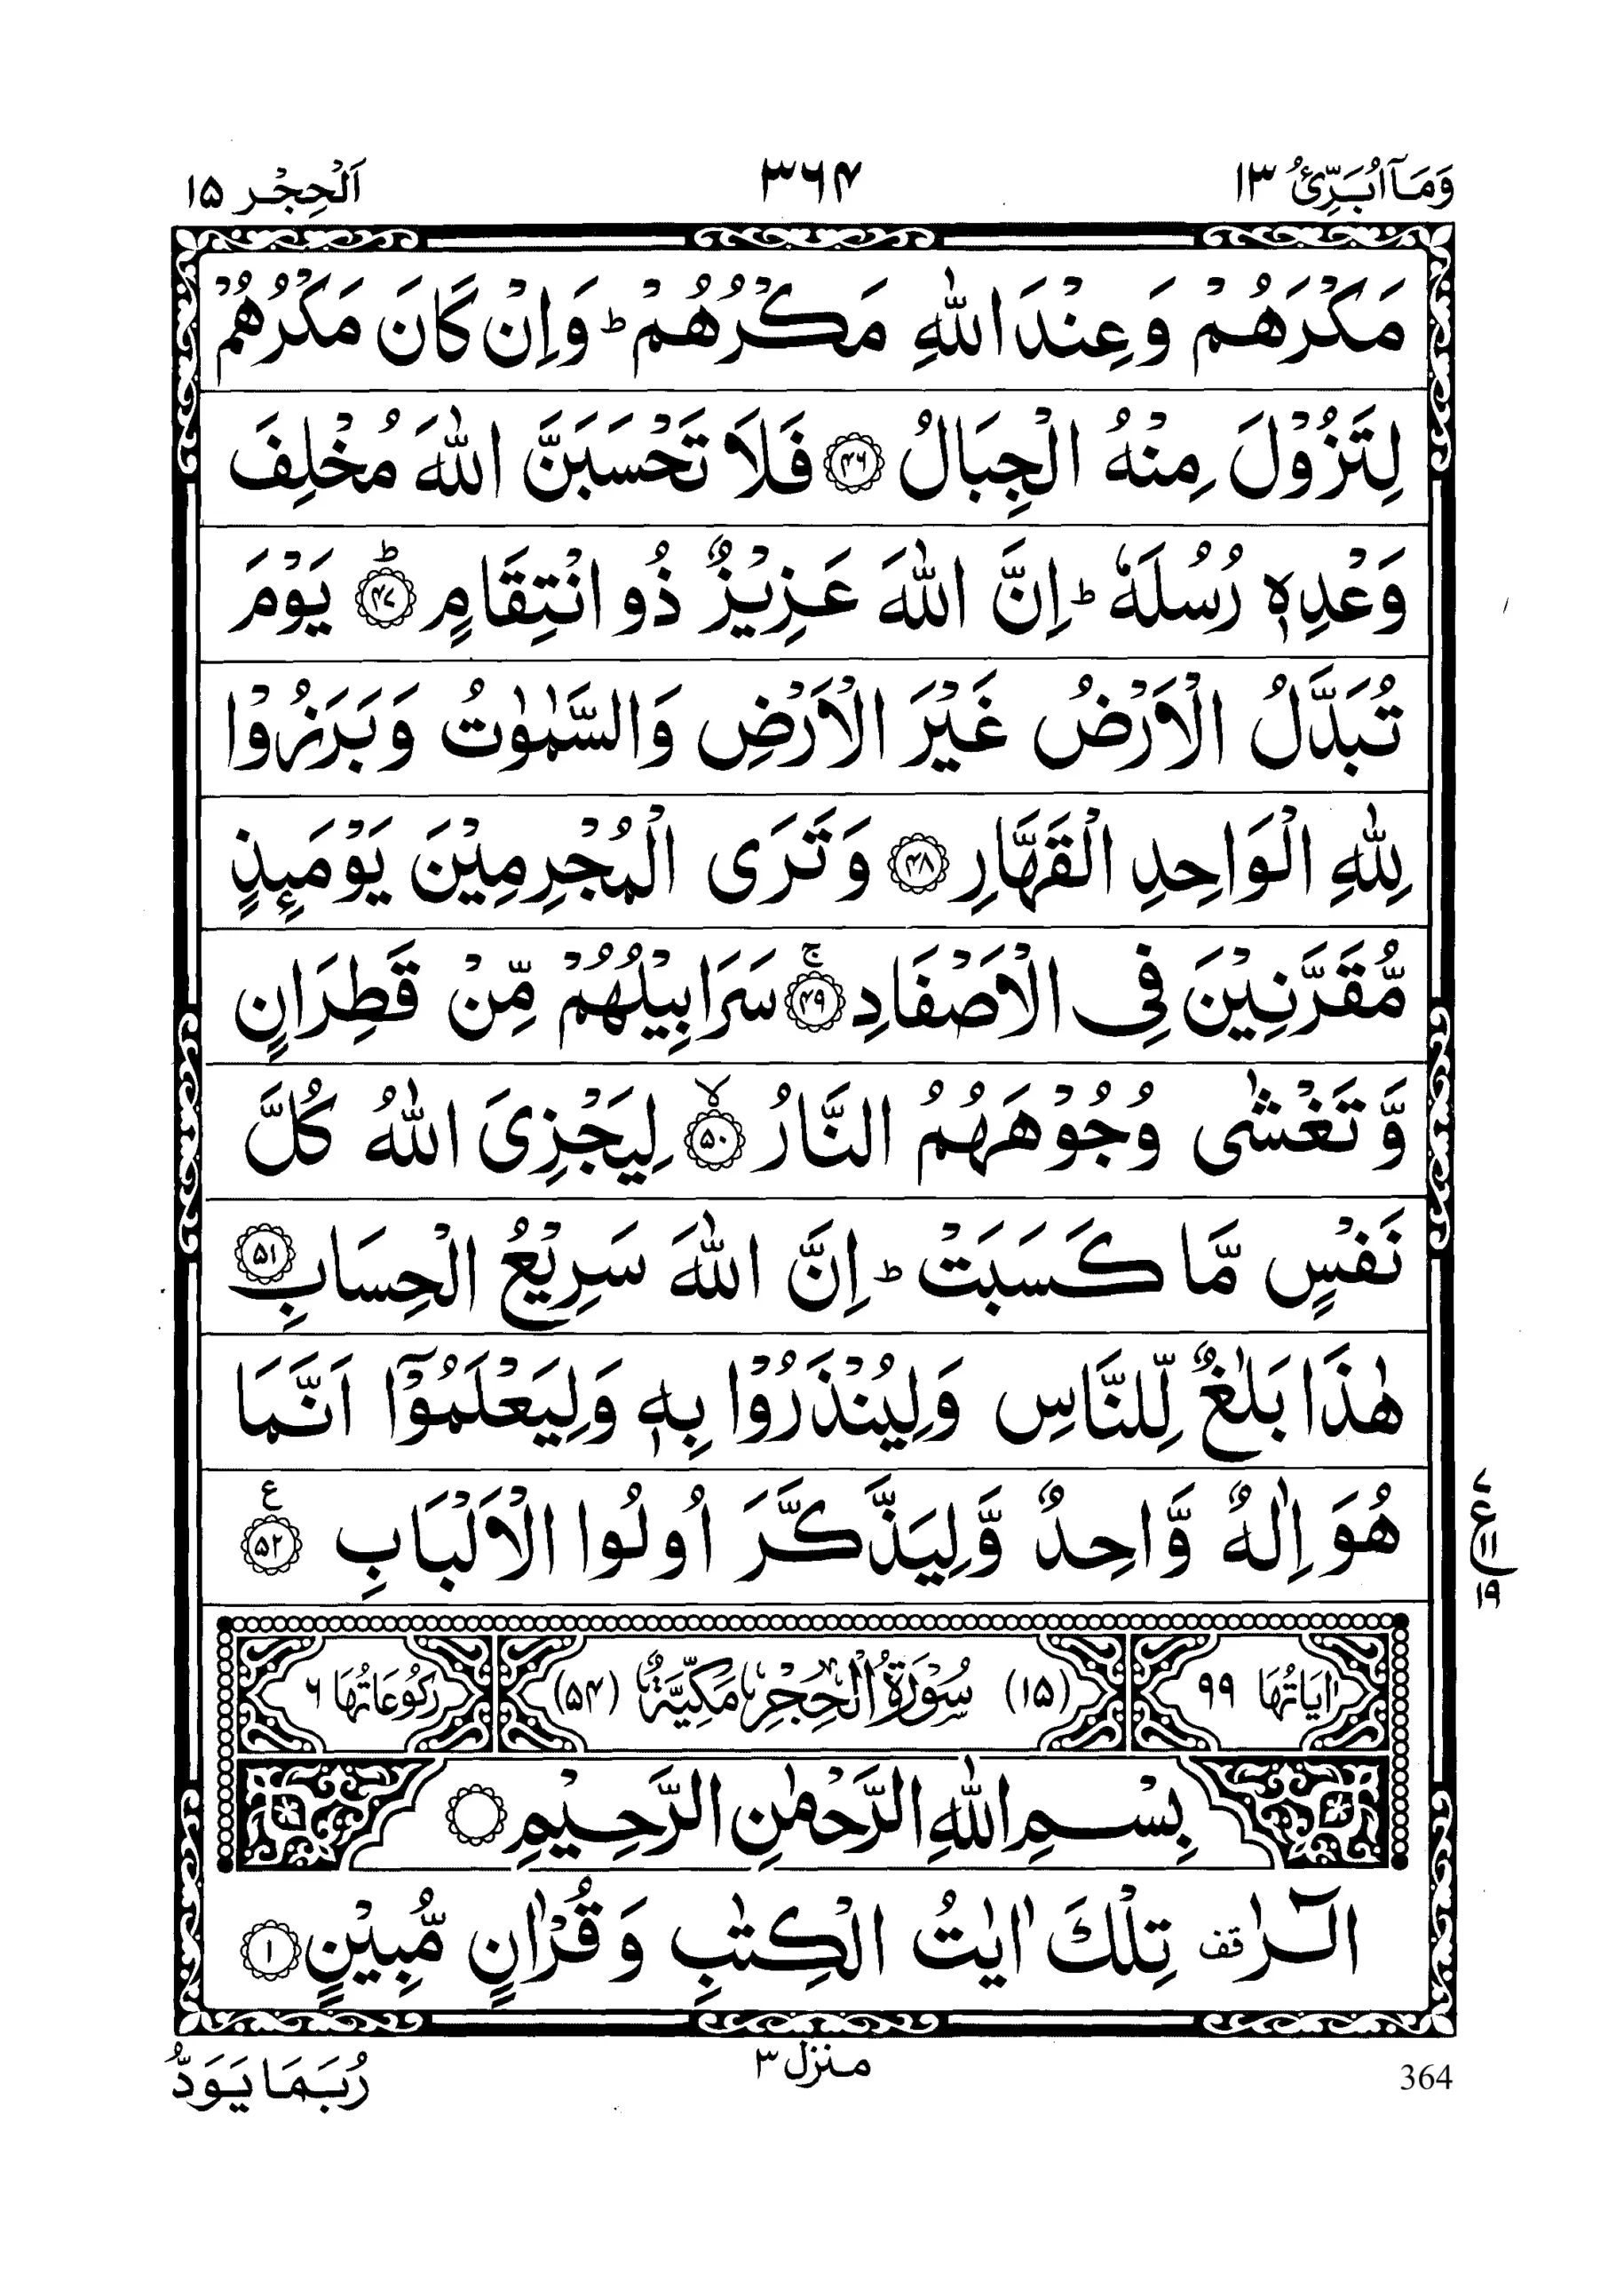 وَمَآ اُبَرِّئُ ۱۳
۳۶۴
اَلْحِجْر ۱۵
مَكْرَهُمْ وَعِنْدَ اللّٰهِ مَكْرُهُمْ ؕ وَاِنْ كَانَ مَكْرُهُمْ
لِتَزُوْلَ مِنْهُ الْجِبَالُ ۴۶ فَلَا تَحْسَبَنَّ اللّٰهَ مُخْلِفَ
وَعْدِهٖ رُسُلَهٗ ؕ اِنَّ اللّٰهَ عَزِيْزٌ ذُو انْتِقَامٍ ؕ ۴۷ يَوْمَ
تُبَدَّلُ الْاَرْضُ غَيْرَ الْاَرْضِ وَالسَّمٰوٰتُ وَبَرَزُوْا
لِلّٰهِ الْوَاحِدِ الْقَهَّارِ ۴۸ وَتَرَى الْمُجْرِمِيْنَ يَوْمَىِٕذٍ
مُّقَرَّنِيْنَ فِى الْاَصْفَادِ ۚ ۴۹ سَرَابِيْلُهُمْ مِّنْ قَطِرَانٍ
وَّتَغْشٰى وُجُوْهَهُمُ النَّارُ ۙ ۵۰ لِيَجْزِىَ اللّٰهُ كُلَّ
نَفْسٍ مَّا كَسَبَتْ ؕ اِنَّ اللّٰهَ سَرِيْعُ الْحِسَابِ ۵۱
هٰذَا بَلٰغٌ لِّلنَّاسِ وَلِيُنْذَرُوْا بِهٖ وَلِيَعْلَمُوْٓا اَنَّمَا
هُوَ اِلٰهٌ وَّاحِدٌ وَّلِيَذَّكَّرَ اُولُوا الْاَلْبَابِ ع ۵۲
۷ ع ۱۱ ۱۹
اٰيَاتُهَا ۹۹
(۱۵) سُوْرَةُ الْحِجْرِ مَكِّيَّةٌ (۵۴)
رُكُوْعَاتُهَا ۶
بِسْمِ اللّٰهِ الرَّحْمٰنِ الرَّحِيْمِ
الٓرٰ قف تِلْكَ اٰيٰتُ الْكِتٰبِ وَقُرْاٰنٍ مُّبِيْنٍ ۱
منزل ۳
رُبَمَا يَوَدُّ
364